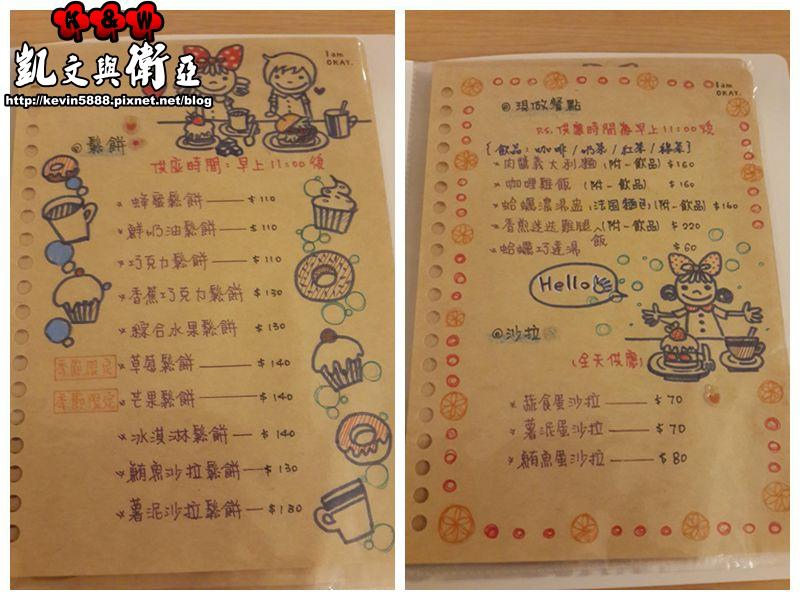 K & W
凱文與衛亞
http://kevin5888.pixnet.net/blog
I am
OKAY.
◎鬆餅
供應時間:早上11:00後
×蜂蜜鬆餅 $110
×鮮奶油鬆餅 $110
×巧克力鬆餅 $110
×香蕉巧克力鬆餅 $130
×綜合水果鬆餅 $130
季節限定 ×草莓鬆餅 $140
季節限定 ×芒果鬆餅 $140
×冰淇淋鬆餅 $140
×鮪魚沙拉鬆餅 $130
×薯泥沙拉鬆餅 $130
I am
OKAY.
◎現做餐點
P.S. 供應時間為早上11:00後
{飲品:咖啡/奶茶/紅茶/綠茶}
×肉醬義大利麵 (附一飲品) $160
×咖哩雞飯 (附一飲品) $160
×蛤蠣濃湯盅(法國麵包)(附一飲品) $160
×香煎迷迭雞腿飯(附一飲品) $220
×蛤蠣巧達湯 $60
Hello
◎沙拉
(全天供應)
×蔬食蛋沙拉 $70
×薯泥蛋沙拉 $70
×鮪魚蛋沙拉 $80